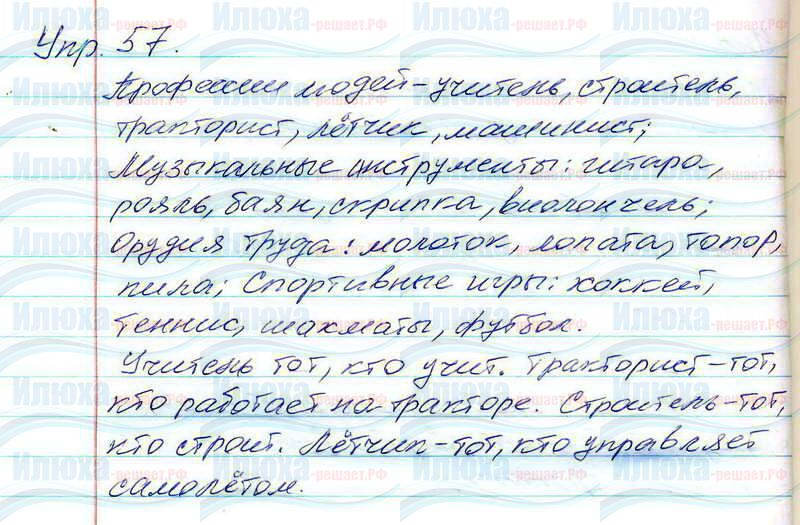 Упр. 57.
Профессии людей - учитель, строитель,
тракторист, лётчик, машинист;
Музыкальные инструменты: гитара,
рояль, баян, скрипка, виолончель;
Орудия труда: молоток, лопата, топор,
пила; Спортивные игры: хоккей,
теннис, шахматы, футбол.
Учитель тот, кто учит. Тракторист - тот,
кто работает на тракторе. Строитель - тот,
кто строит. Лётчик - тот, кто управляет
самолётом.